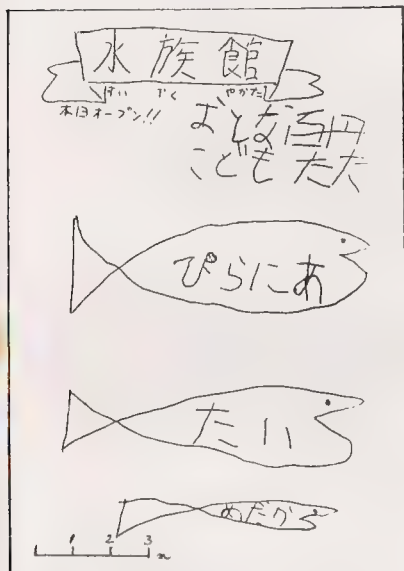 水族館
すい ぞく やかた
本日オープン!!
おとな百円
こどもただ
ぴらにあ
たい
めだか
1 2 3
m